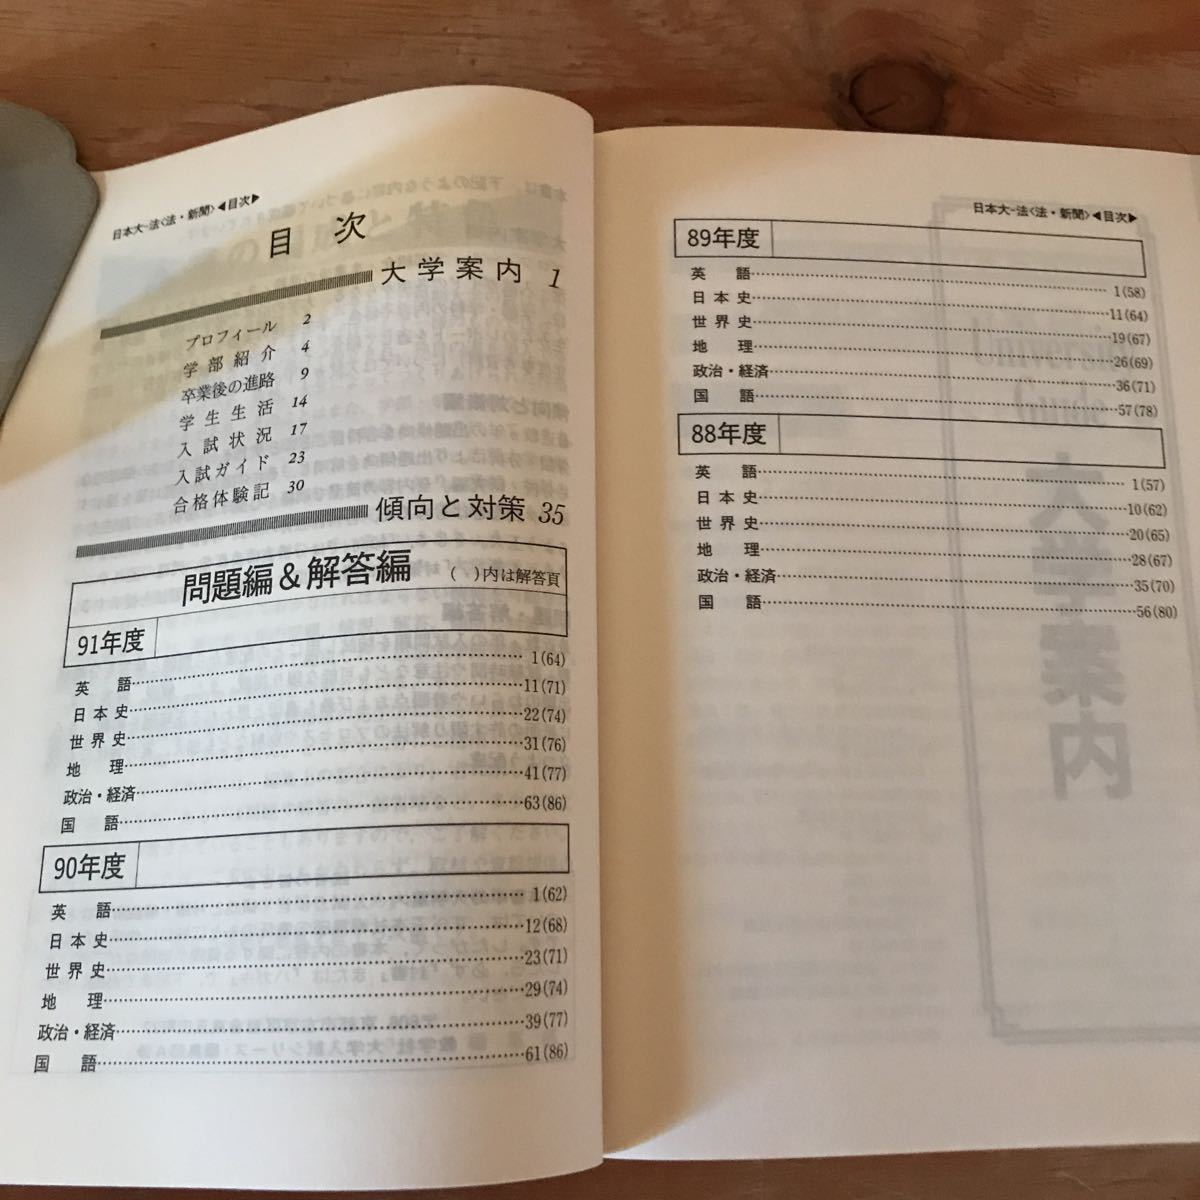 日本大-法〈法・新聞〉◀目次▶
目次
大学案内 1
プロフィール 2
学部紹介 4
卒業後の進路 9
学生生活 14
入試状況 17
入試ガイド 23
合格体験記 30
傾向と対策 35
問題編&解答編 ( )内は解答頁
91年度
英語 1(64)
日本史 11(71)
世界史 22(74)
地理 31(76)
政治・経済 41(77)
国語 63(86)
90年度
英語 1(62)
日本史 12(68)
世界史 23(71)
地理 29(74)
政治・経済 39(77)
国語 61(86)
日本大-法〈法・新聞〉◀目次▶
89年度
英語 1(58)
日本史 11(64)
世界史 19(67)
地理 26(69)
政治・経済 36(71)
国語 57(78)
88年度
英語 1(57)
日本史 10(62)
世界史 20(65)
地理 28(67)
政治・経済 35(70)
国語 56(80)
University
Guide
大学案内